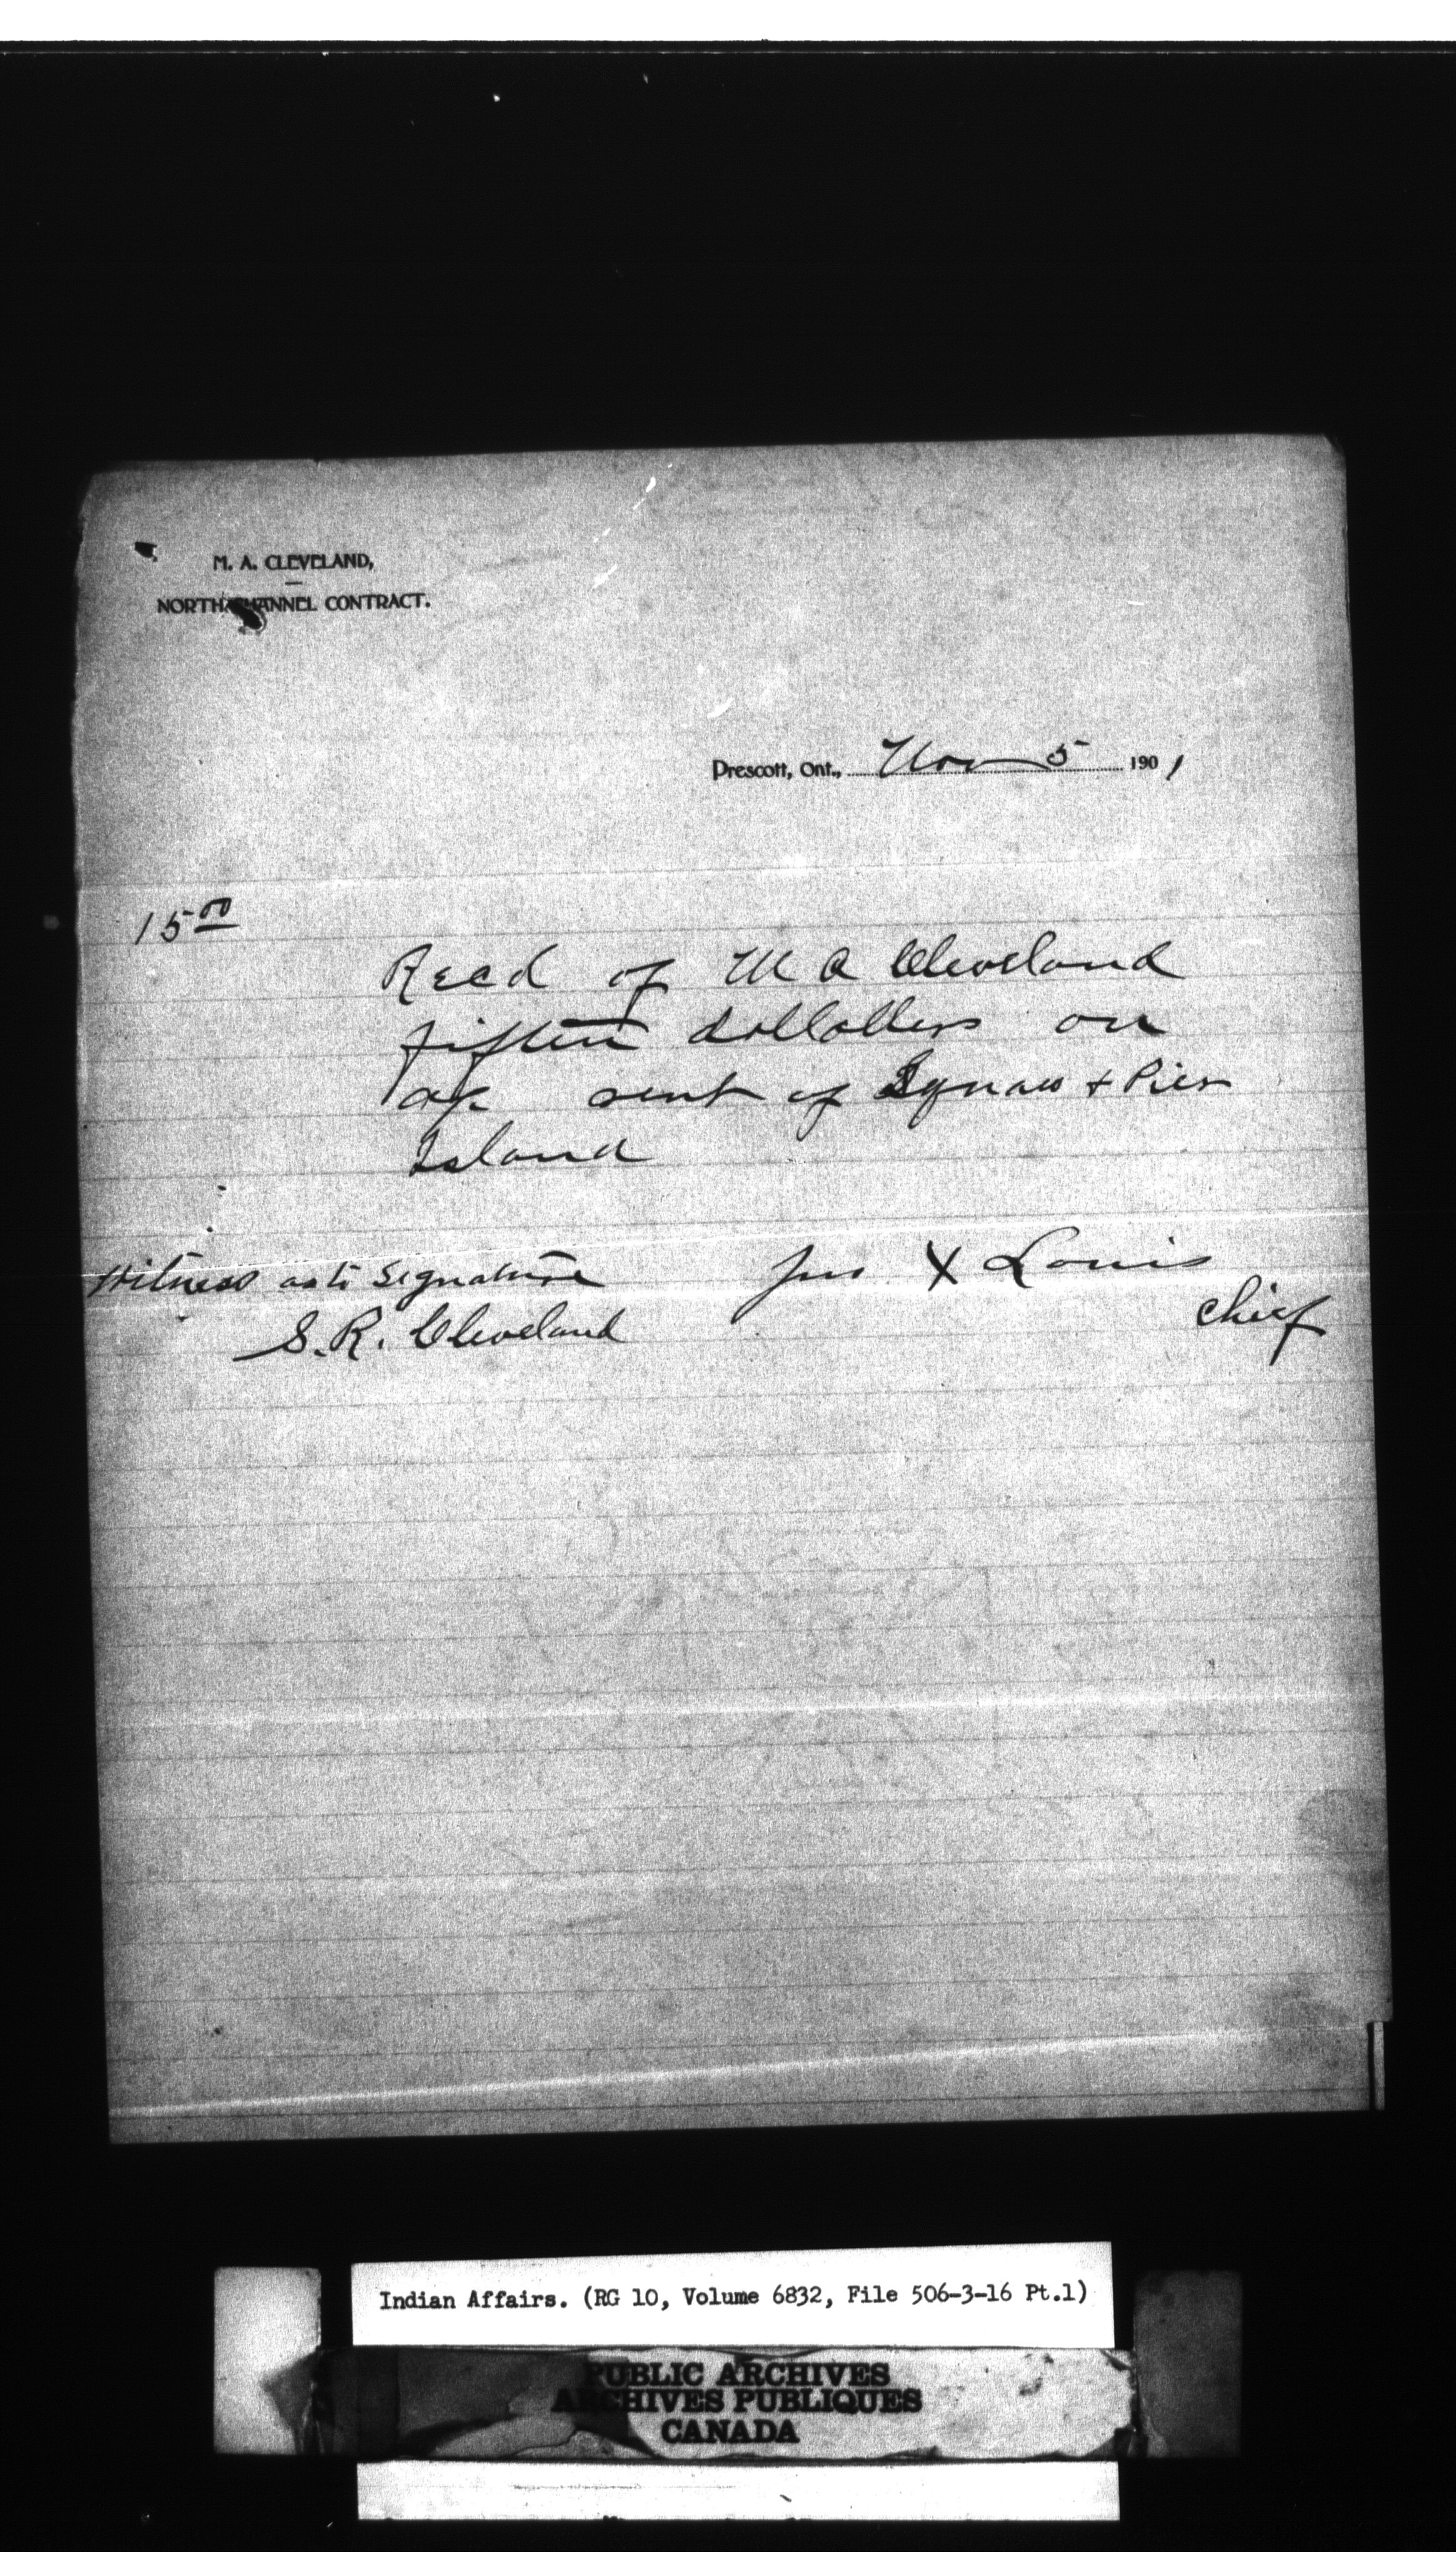 M. A. CLEVELAND,
NORTH CHANNEL CONTRACT.
Prescott, Ont., Nov 5 1901
15 00
Recd of M A Cleveland
fifteen dollollers on
a/c rent of & Pier
Island
Witness as to Signature
Jno X Louis
Chief
S. R. Cleveland
Indian Affairs. (RG 10, Volume 6832, File 506-3-16 Pt.1)
PUBLIC ARCHIVES
ARCHIVES PUBLIQUES
CANADA